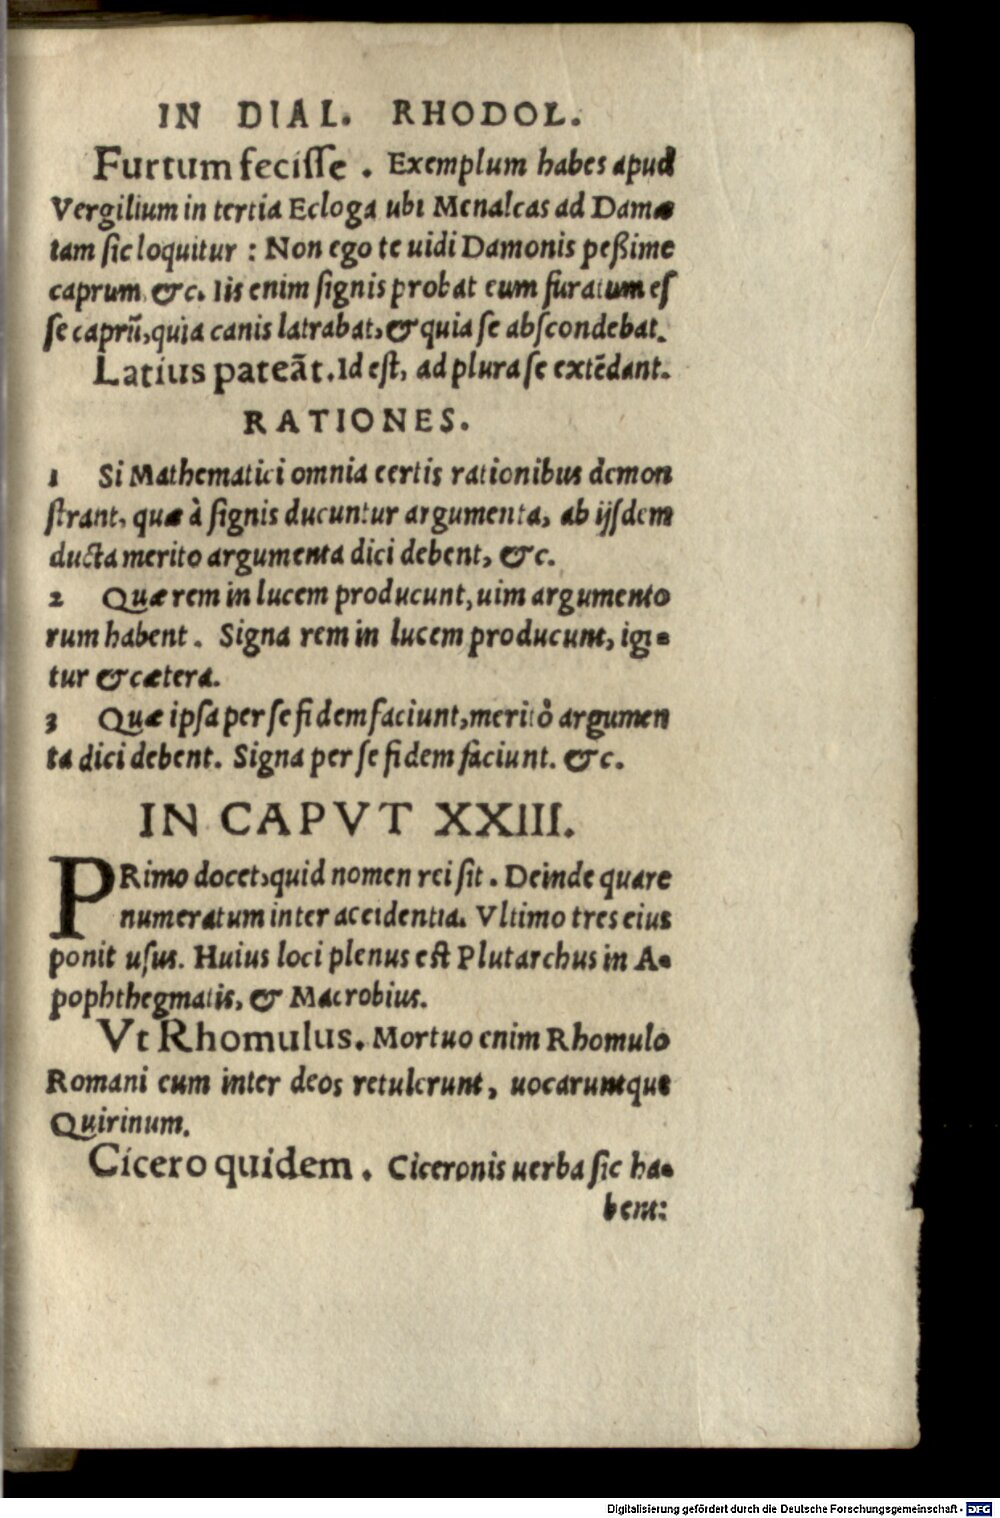 IN DIAL. RHODOL.
Furtum fecisse. Exemplum habes apud
Vergilium in tertia Ecloga ubi Menalcas ad Damæ
tam sic loquitur: Non ego te uidi Damonis peßime
caprum, &c. Iis enim signis probat eum furatum es
se caprũ, quia canis latrabat, & quia se abscondebat.
Latius pateãt. Id est, ad plura se extẽdant.
RATIONES.
1 Si Mathematici omnia certis rationibus demon
strant, quæ à signis ducuntur argumenta, ab ijsdem
ducta merito argumenta dici debent, &c.
2 Quæ rem in lucem producunt, uim argumento
rum habent. Signa rem in lucem producunt, igi-
tur & cætera.
3 Quæ ipsa per se fidem faciunt, meritò argumen
ta dici debent. Signa per se fidem faciunt. &c.
IN CAPVT XXIII.
PRimo docet, quid nomen rei sit. Deinde quare
numeratum inter accidentia. Vltimo tres eius
ponit usus. Huius loci plenus est Plutarchus in A-
pophthegmatis, & Macrobius.
Vt Rhomulus. Mortuo enim Rhomulo
Romani eum inter deos retulerunt, uocaruntque
Quirinum.
Cicero quidem. Ciceronis uerba sic ha-
bent:
Digitalisierung gefördert durch die Deutsche Forschungsgemeinschaft - DFG